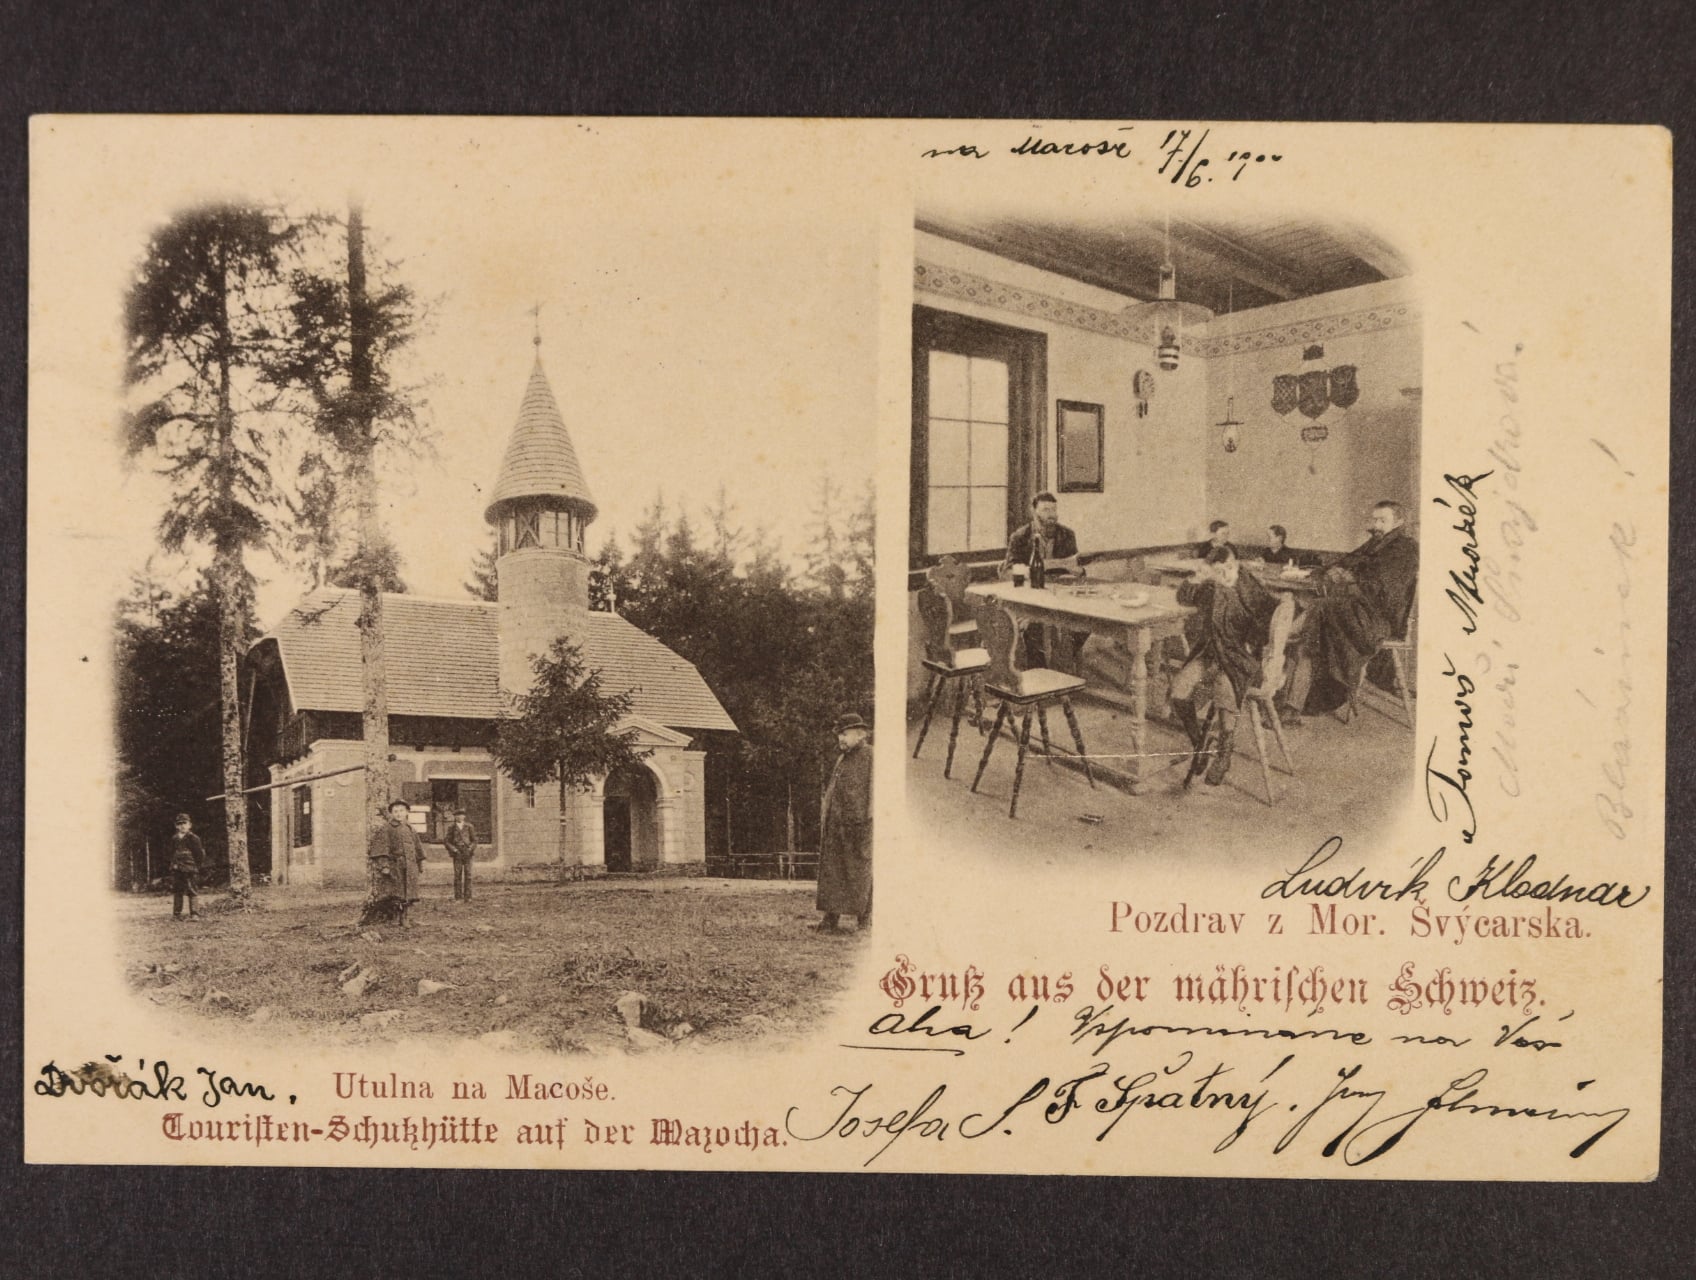 na Macoše 17/6. 1900
Tomáš
Ludvík Klodnar
Pozdrav z Mor. Švýcarska.
Gruß aus der mährischen Schweiz.
Aha! Vzpomínáme na Vás
Dvořák Jan.
Utulna na Macoše.
Touristen-Schutzhütte auf der Mazocha.
Josefa S. F Špatný.